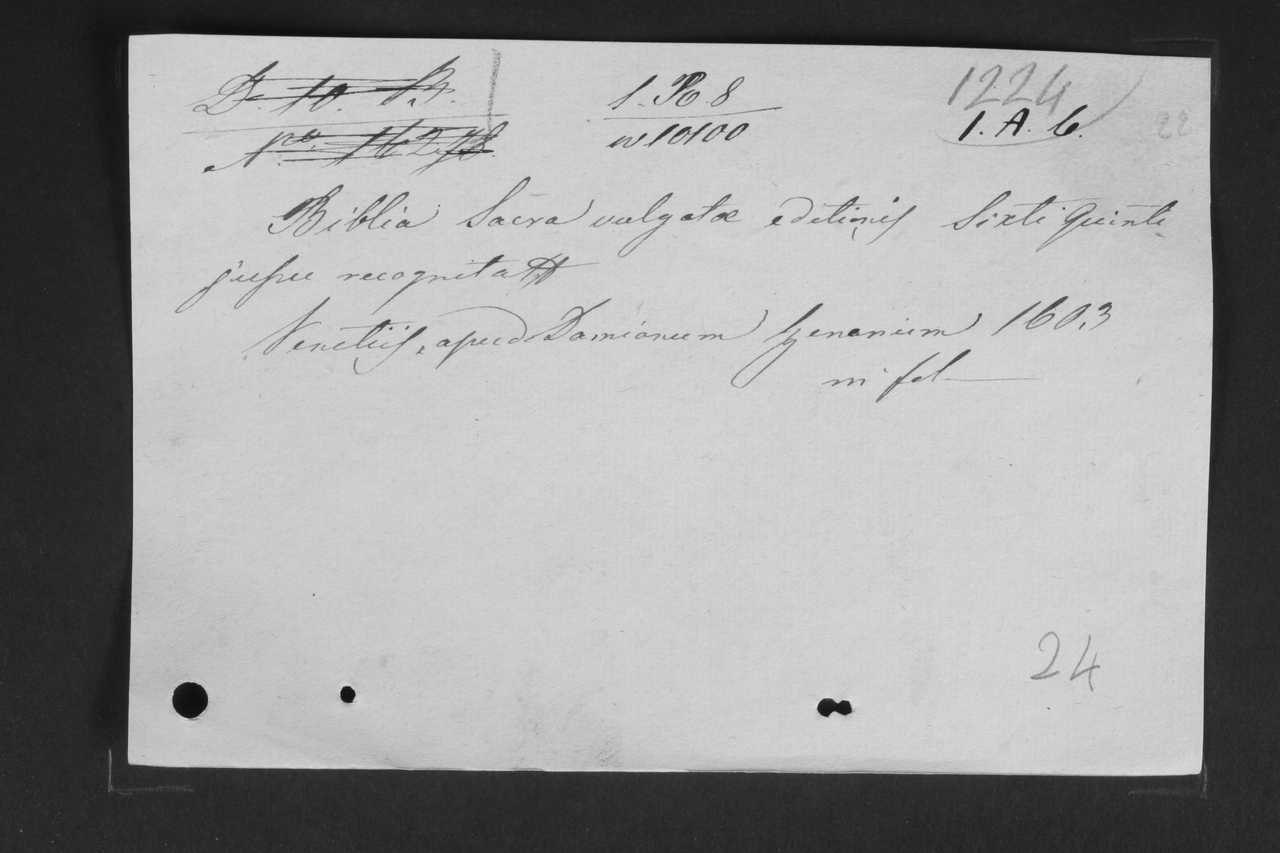 D. 10. B. 1. R. 8 1224
No. 16278. w 10100 1. A. 6. 22
Biblia Sacra vulgatæ editionis Sixti Quinti
jussu recognita
Venetiis, apud Damianum Zenarium 1603
in fol
24